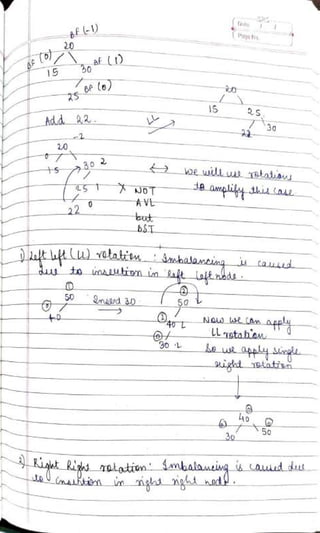 Date
Page No.
BF (-1)
20
BF (0)
15
30 BF (1)
25 BF (0)
Add 22.
LL
20
15
25
22
30
-2
20
0
15
30 2
25 1
22 0
X NOT
AVL
but
BST
↔ we will use rotations
to amplify this case
1) Left left (LL) rotation : Imbalancing is caused
due to insertion in left left node.
①
50
⓪
40
Insert 30
→
②
50 L
①
40 L
⓪
30 L
Now we can apply
LL rotation
So we apply single
right rotation
⓪
40
⓪
30
⓪
50
2) Right Right rotation : Imbalancing is caused due
to insertion in right right node.